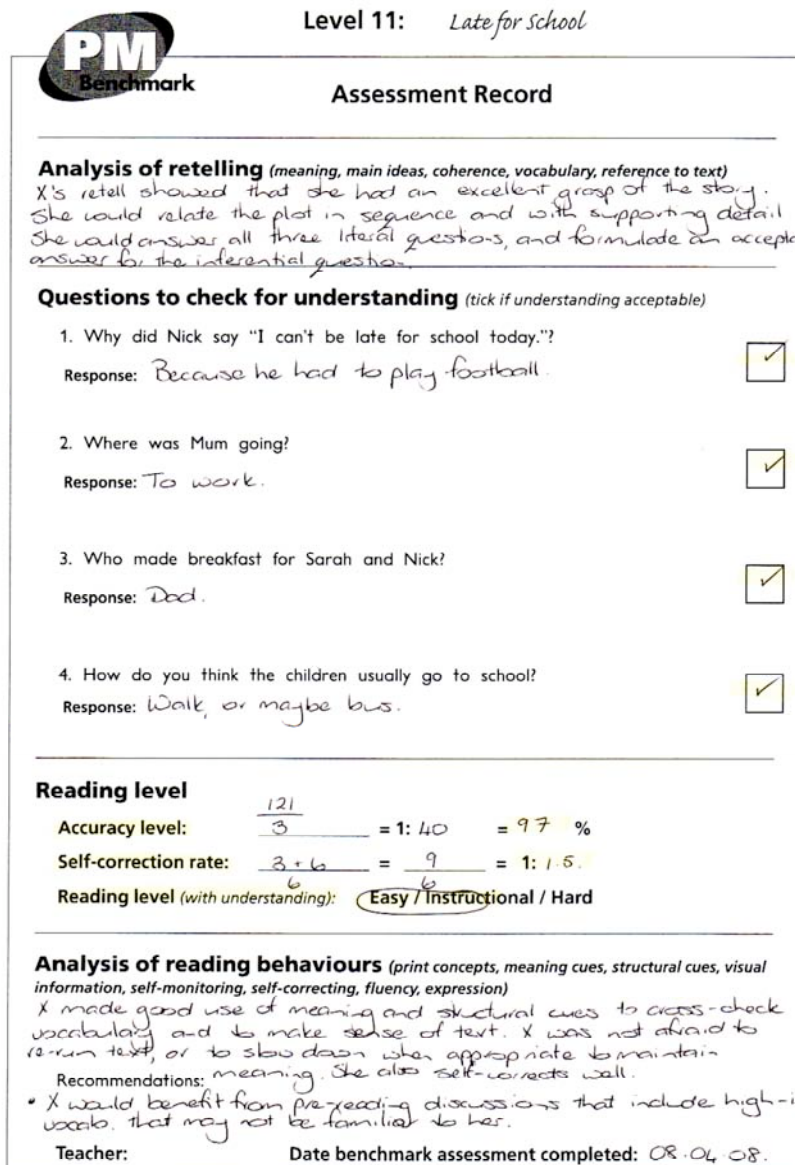 Level 11: Late for School
PM
Benchmark
Assessment Record
Analysis of retelling (meaning, main ideas, coherence, vocabulary, reference to text)
X's retell showed that she had an excellent grasp of the story.
She could relate the plot in sequence and with supporting detail
She could answer all three literal questions, and formulate an accepta
answer for the inferential question.
Questions to check for understanding (tick if understanding acceptable)
1. Why did Nick say "I can't be late for school today."?
Response: Because he had to play football.
2. Where was Mum going?
Response: To work.
3. Who made breakfast for Sarah and Nick?
Response: Dad.
4. How do you think the children usually go to school?
Response: Walk, or maybe bus.
Reading level
121
Accuracy level: 3 = 1: 40 = 97 %
Self-correction rate: 3 + 6 = 9 = 1: 1.5.
6 6
Reading level (with understanding): Easy / Instructional / Hard
Analysis of reading behaviours (print concepts, meaning cues, structural cues, visual
information, self-monitoring, self-correcting, fluency, expression)
X made good use of meaning and structural cues to cross-check
vocabulary and to make sense of text. X was not afraid to
re-run text, or to slow down when appropriate to maintain
Recommendations: meaning. She also self-corrects well.
• X would benefit from pre-reading discussions that include high-i
vocab. that may not be familiar to her.
Teacher: Date benchmark assessment completed: 08.04.08.